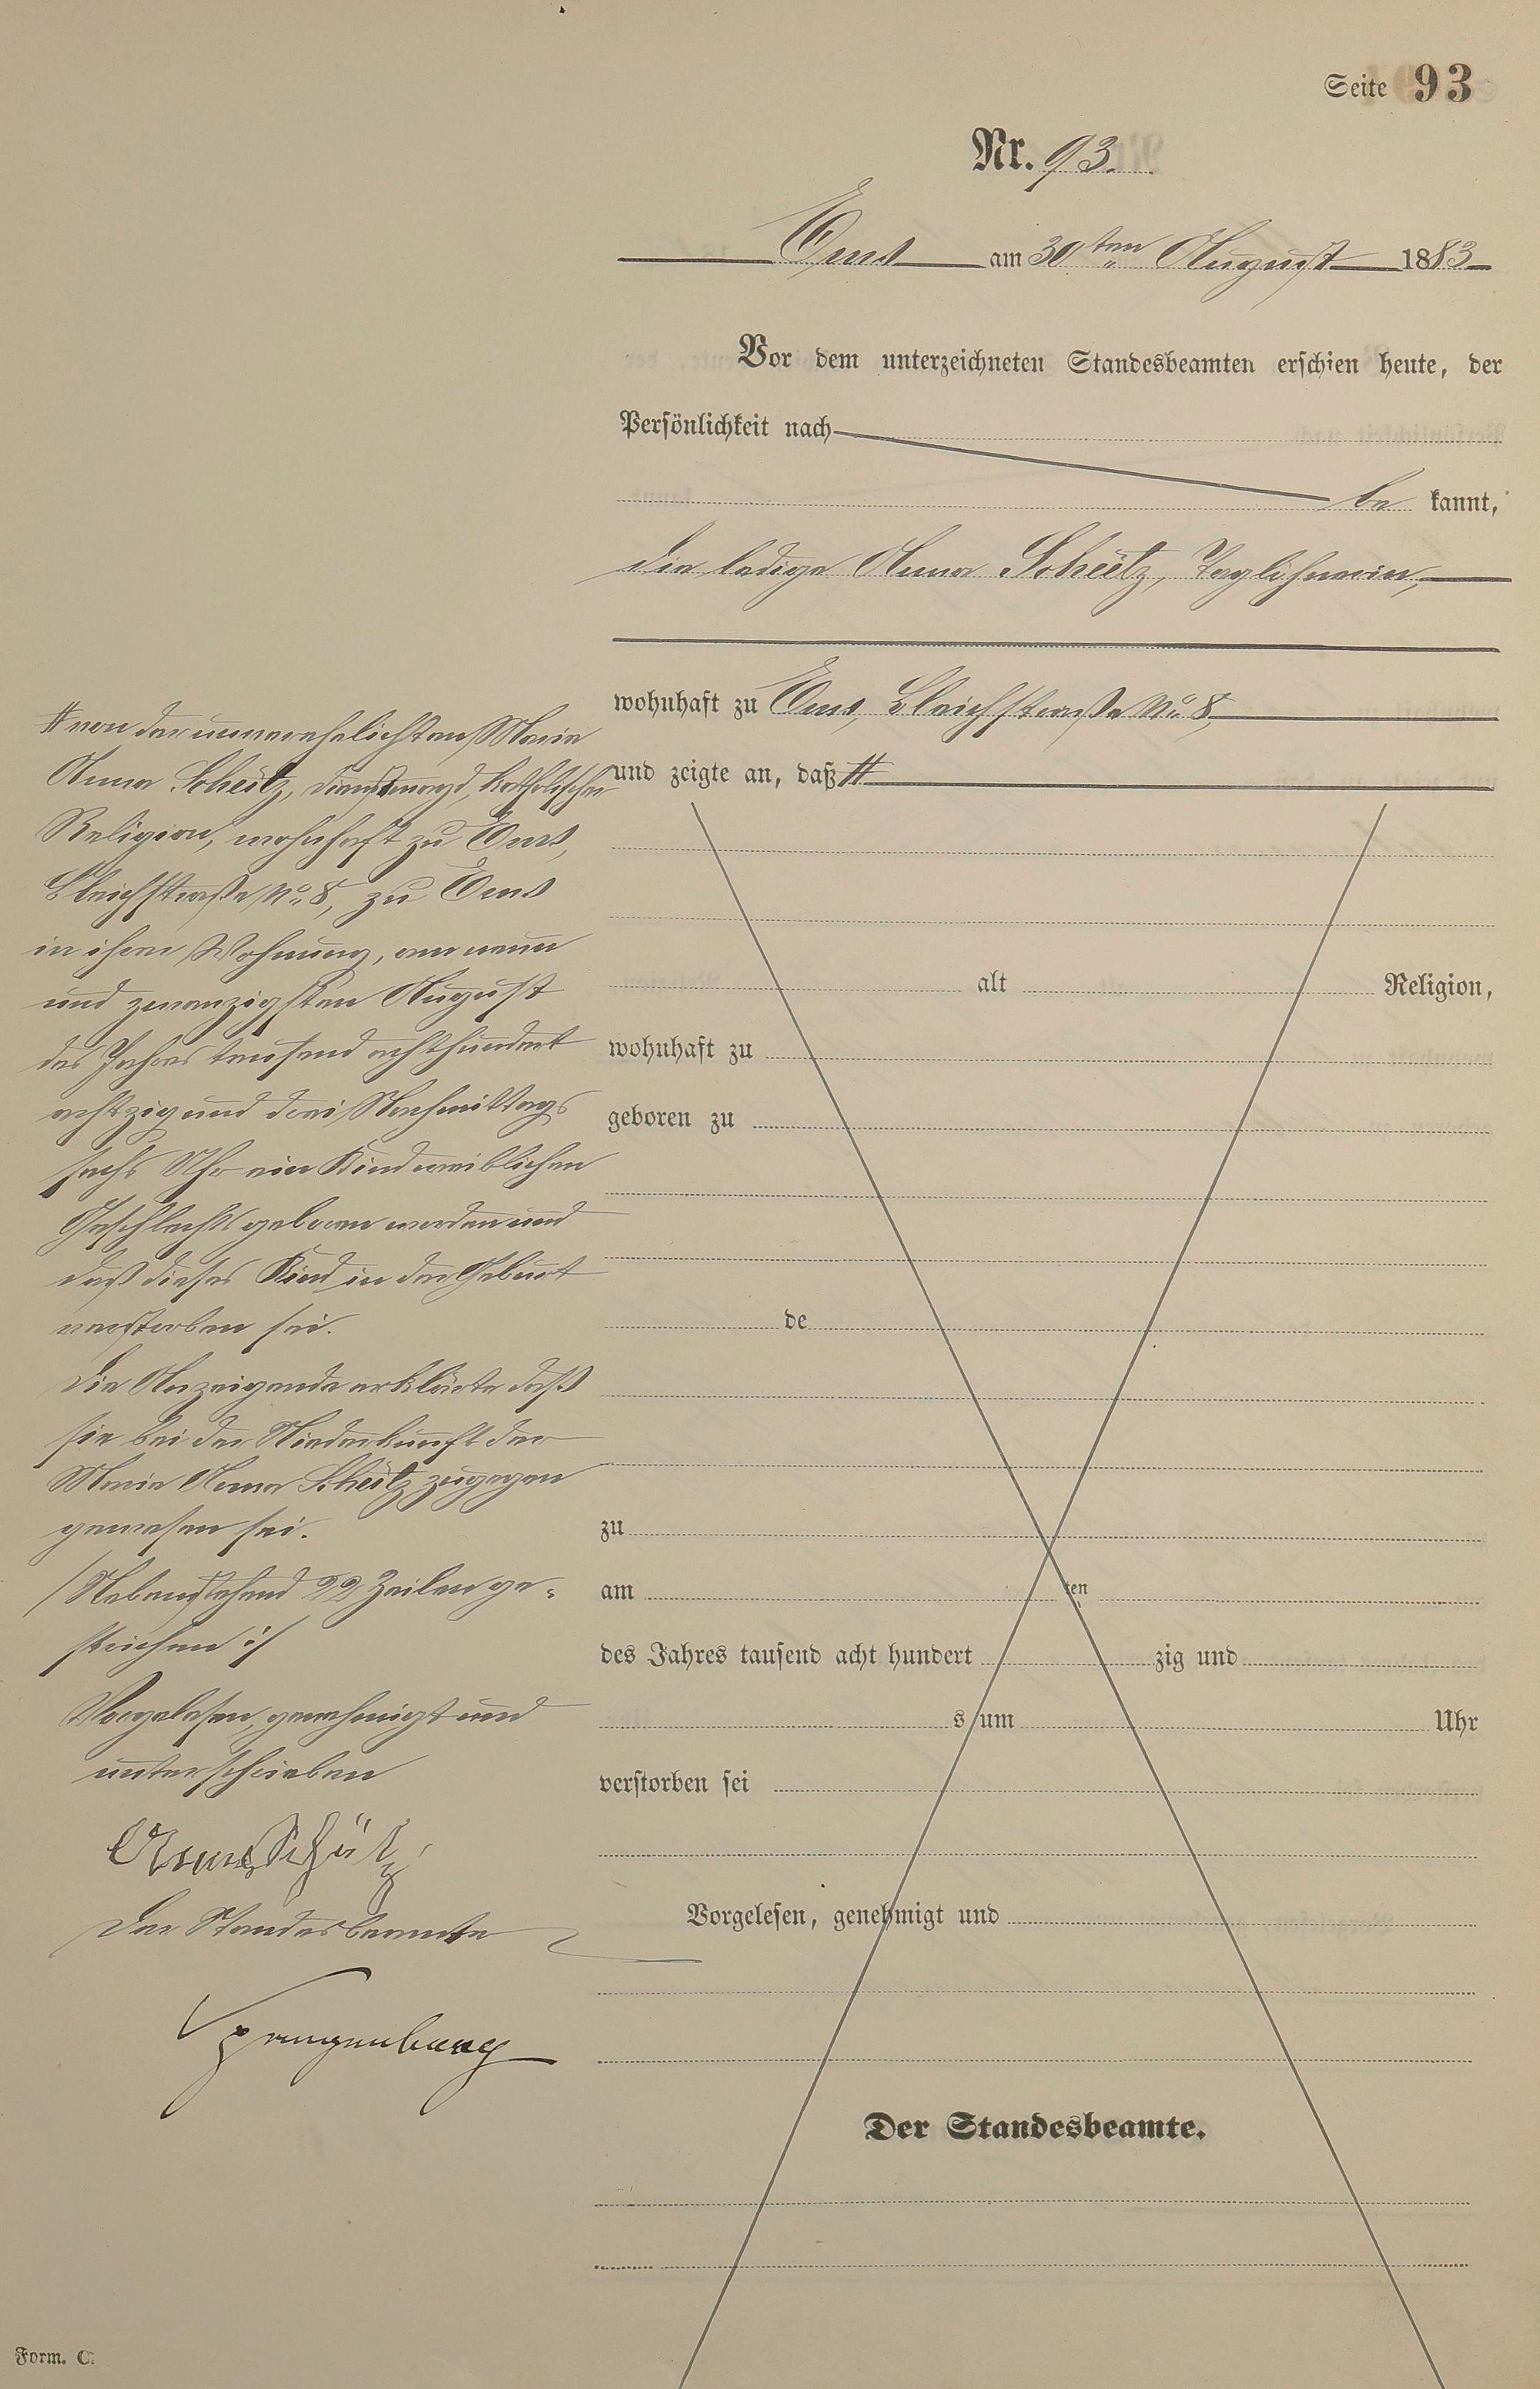 Seite 93
Nr. 93.
Ems am 30ten August 1883
Vor dem unterzeichneten Standesbeamten erschien heute, der
Persönlichkeit nach
be kannt,
die ledige Anna Schütz, Taglöhnerin,
wohnhaft zu Ems, Bleichstraße No. 8,
und zeigte an, daß #
# von der unverehelichten Marie
Anna Schütz, Dienstmagd, katholischer
Religion, wohnhaft zu Ems,
Bleichstraße No. 8, zu Ems
in ihrer Wohnung, am neun
und zwanzigsten August
des Jahres tausend achthundert
achtzig und drei Nachmittags
sechs Uhr ein Kind weiblichen
Geschlechts geboren worden und
daß dieses Kind in der Geburt
verstorben sei.
Die Anzeigende erklärte daß
sie bei der Niederkunft der
Marie Anna Schütz zugegen
gewesen sei.
/Nebenstehend 22 Zeilen ge-
strichen :/
Vorgelesen, genehmigt und
unterschrieben
Anna Schütz
Der Standesbeamte
Spangenberg
alt Religion,
wohnhaft zu
geboren zu
de
zu
am ten
des Jahres tausend acht hundert zig und
s um Uhr
verstorben sei
Vorgelesen, genehmigt und
Der Standesbeamte.
Form. C.